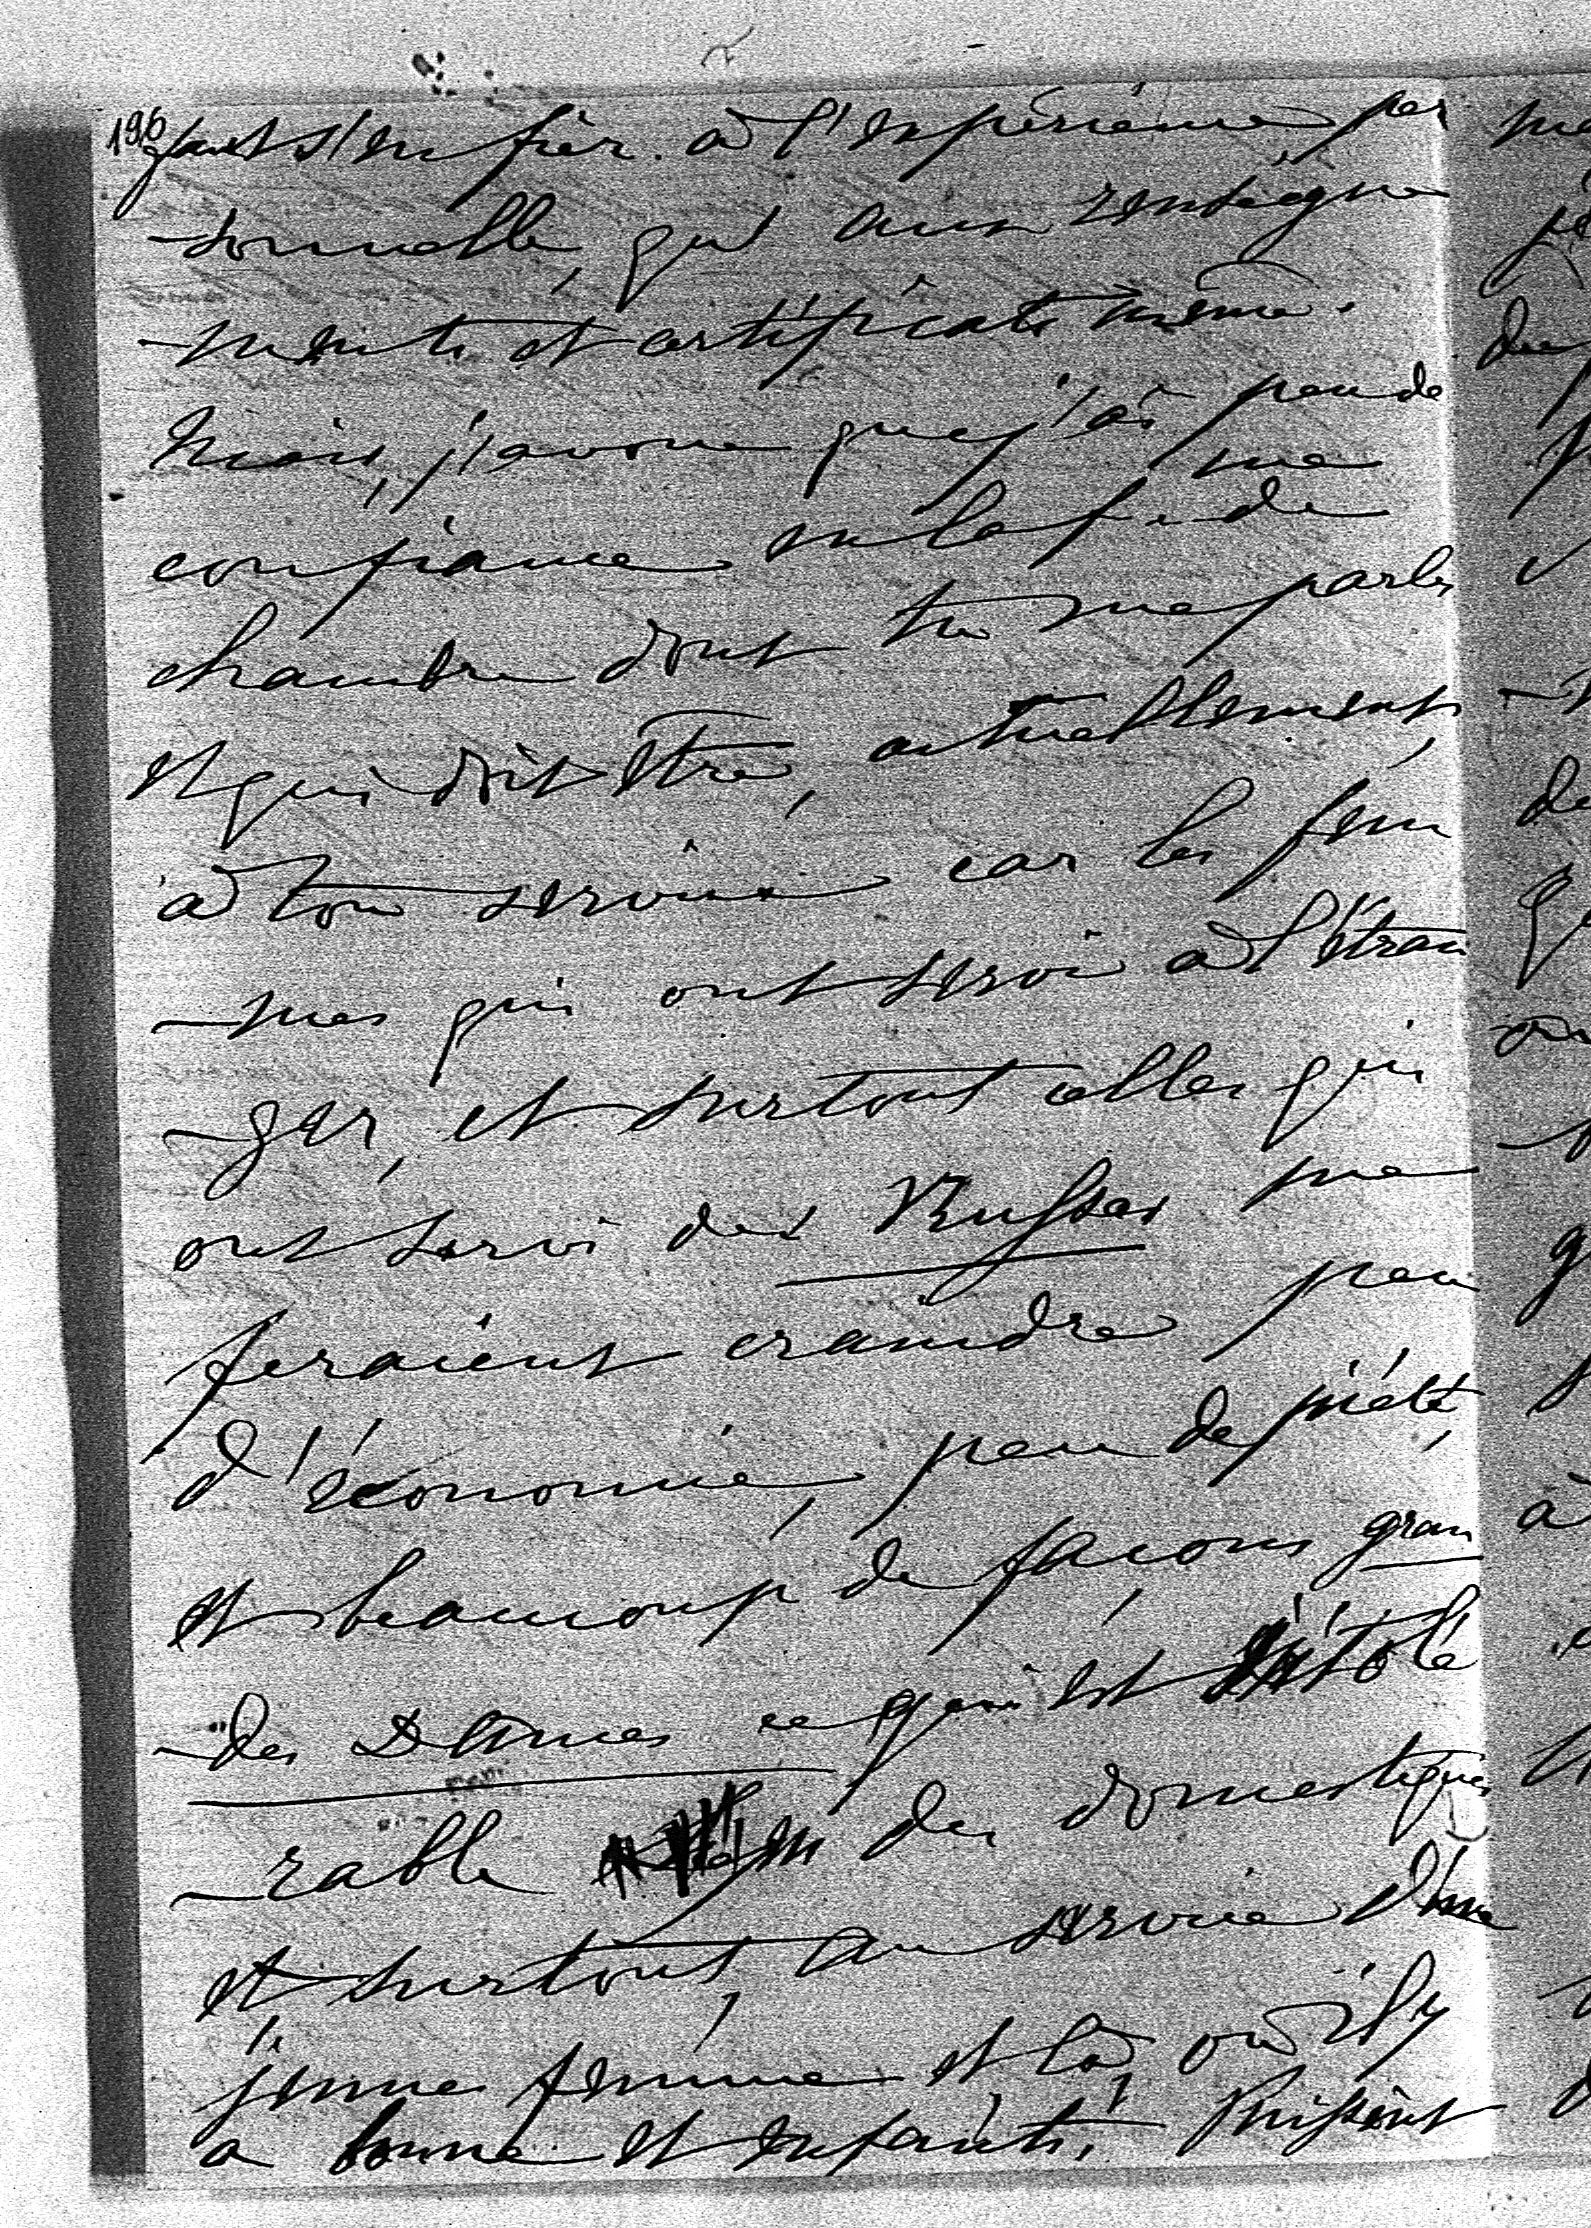 196
faut s'en fier à l'expérience per
-sonnelle, qu'aux renseigne
-ments et certificats même.
Mais, j'avoue que j'ai peu de
confiance en la fe de
chambre dont tu me parles
et qui doit être, actuellement,
à ton service car les fem
-mes qui ont servi à l'étran
-ger, et surtout celles qui
ont servi des Russes me
feraient craindre peu
d'économie, peu de piété,
et beaucoup de façons gran
-des Dames ce qui est intolé
-rable en des domestiques
et surtout, au service d'une
jeune femme et là, où il y
a bonne et enfants. Puissent